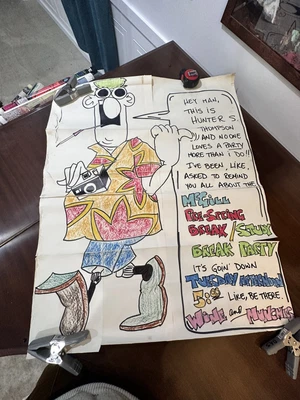 HEY MAN,
THIS IS
HUNTER S.
THOMPSON
AND NO ONE
LOVES A PARTY
MORE THAN I DO!!
I'VE BEEN, LIKE,
ASKED TO REMIND
YOU ALL ABOUT THE
McGILL
PRE-SPRING
BREAK/STUDY
BREAK PARTY
IT'S GOIN' DOWN
TUESDAY AFTERNOON
5:00 LIKE, BE THERE.
WINE AND MUNCHIES